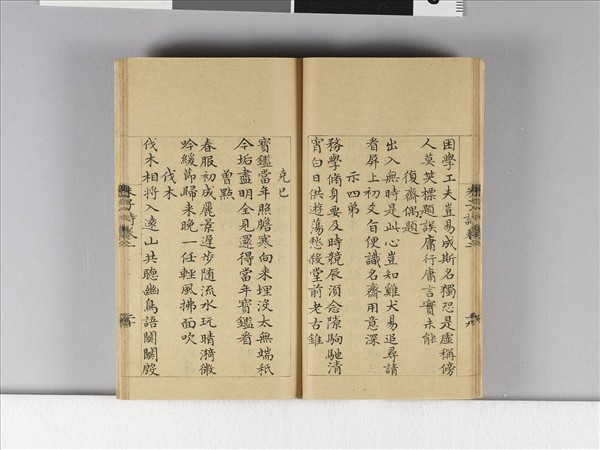 困學工夫豈易成斯名獨恐是虛稱傍
人莫笑標題誤庸行庸言實未能
復齋偶題
出入無時是此心豈知雞犬易追尋請
看屏上初爻自便識名齋用意深
示四弟
務學脩身要及時競辰須念隙駒馳清
宵白日供遊蕩愁殺堂前老古錐
克己
寶鑑當年照膽寒向來埋沒太無端秖
今垢盡明全見還得當年寶鑑看
曾點
春服初成麗景遲步随流水玩晴漪微
吟緩節歸来晚一任輕風拂面吹
伐木
伐木相將入遠山共聴幽鳥語關關殷